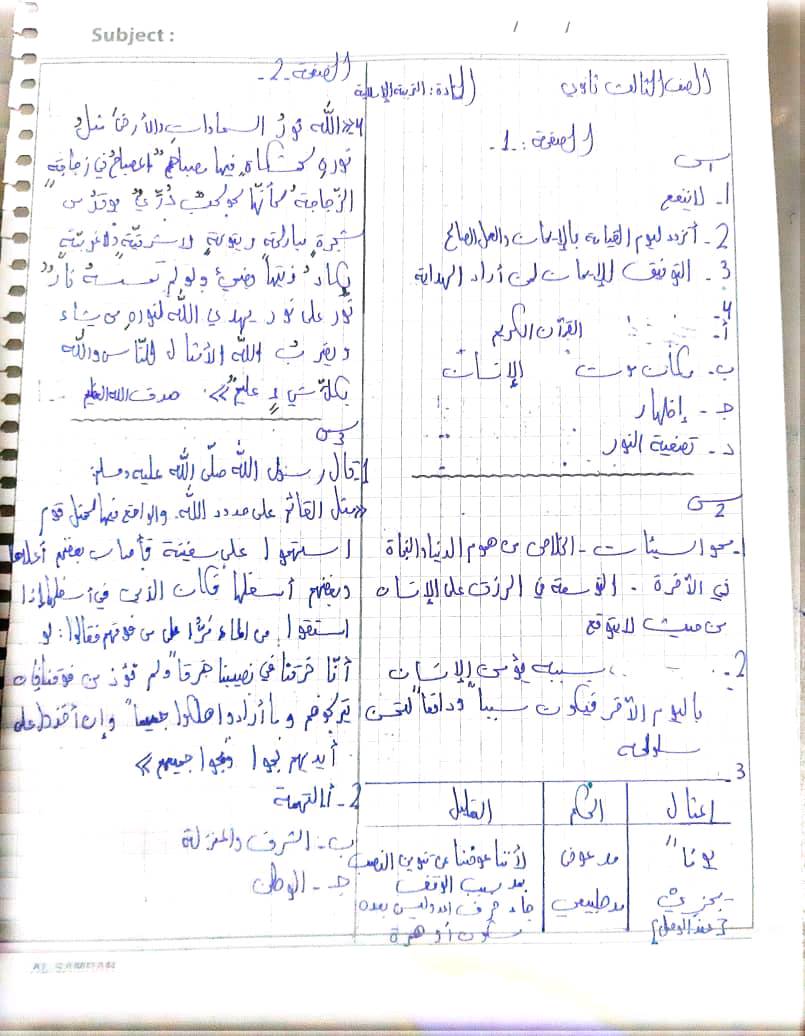 Subject :
/ /
الصف الثالث ثانوي
المادة: التربية الإسلامية
الصفحة: -1-
س1
1- لا ينفع
2- أتزود ليوم القيامة بالإيمان والعمل الصالح
3- التوفيق للإيمان لمن أراد الهداية
4-
أ- القرآن الكريم
ب- مكان موت الإنسان
جـ- إظهار
د- تصفية النور
س2
1- محو السيئات - الخلاص من هموم الدنيا والنجاة
في الآخرة - التوسعة في الرزق على الإنسان
من حيث لا يتوقع
2- بسببه يؤمن الإنسان
باليوم الآخر فيكون سبباً ودافعاً لتحسن
سلوكه
3-
المثال الحكم التعليل
يونا" مد عوض لأننا عوضنا عن تنوين النصب
بمد بسبب الوقف
يجزي مد طبيعي جاء حرف المد وليس بعده
[عند الوصل] سكون أو همزة
الصفحة -2-
4» الله نور السماوات والأرض مثل
نوره كمشكاة فيها مصباح المصباح في زجاجة
الزّجاجة كأنّها كوكب دُرّيّ يوقد من
شجرة مباركة زيتونة لا شرقيّة ولا غربيّة
يكاد زيتها يضيء ولو لم تمسسه نار
نور على نور يهدي الله لنوره من يشاء
ويضرب الله الأمثال للنّاس والله
بكلّ شيء عليم» صدق الله العظيم
س3
1- قال رسول الله صلّى الله عليه وسلم:
«مثل القائم على حدود الله والواقع فيها كمثل قوم
استهموا على سفينة فأصاب بعضهم أعلاها
وبعضهم أسفلها فكان الذين في أسفلها إذا
استقوا من الماء مَرّوا على من فوقهم فقالوا: لو
أنّا خرقنا في نصيبنا خرقاً ولم نؤذ من فوقنا فإن
يتركوهم وما أرادوا هلكوا جميعاً وإن أخذوا على
أيديهم نجوا ونجوا جميعهم»
2- أ- التهمة
ب- الشرف والمنزلة
جـ- الوطن